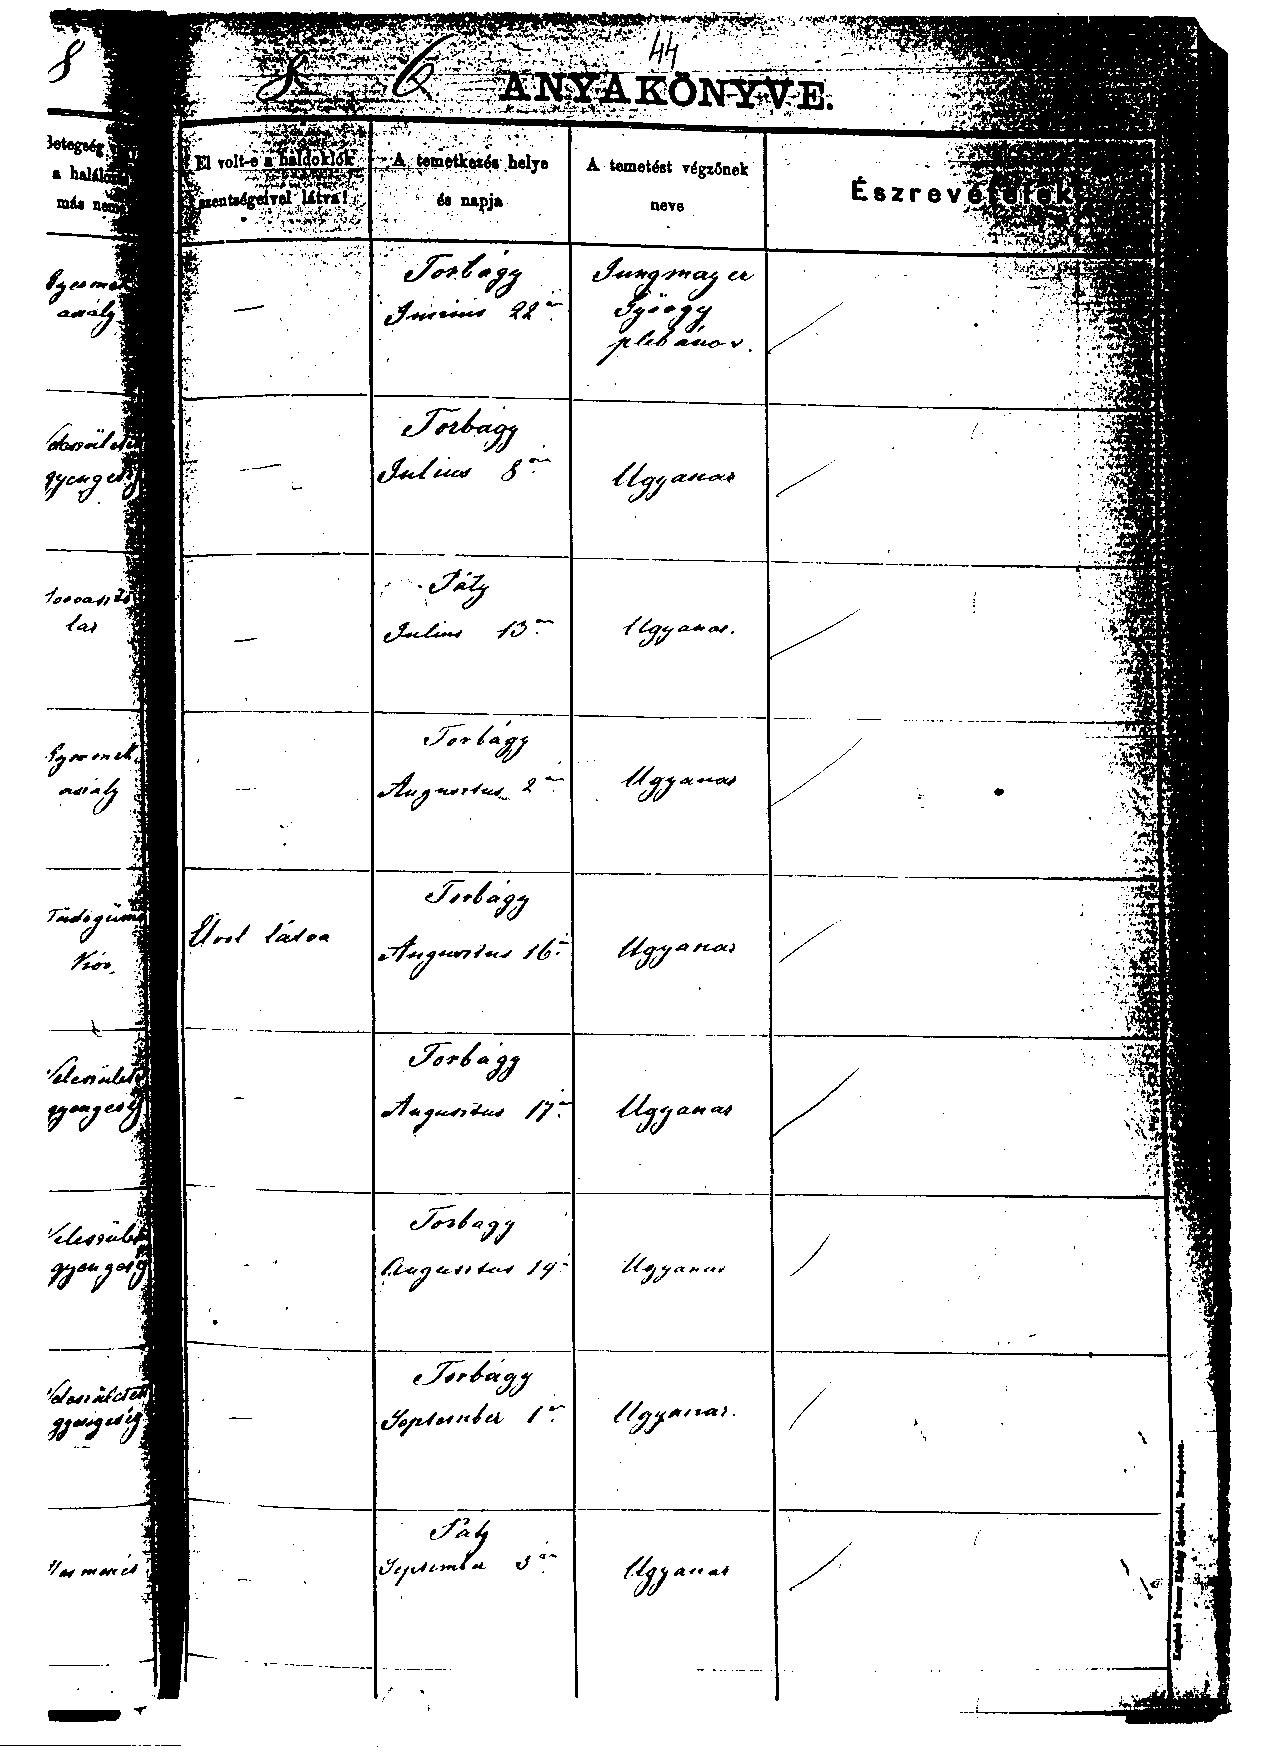 8
8 6
44
ANYAKÖNYVE.
Betegség
a halál
más nem
El volt-e a haldoklók
szentségeivel látva?
A temetkezés helye
és napja
A temetést végzőnek
neve
Észrevételek
Gyermek
aszály
—
Torbágy
Junius 22én
Jungmayer
György
plebános.
Veleszületett
gyengeség
—
Torbágy
Julius 8án
Ugyanas
las
—
Páty
Julius 13án
Ugyanas.
Gyermek
aszály
—
Torbágy
Augustus 2án
Ugyanas
Tüdőgüm
Kór.
El vol látva
Torbágy
Augustus 16án
Ugyanas
Veleszületet
gyengeség
-
Torbágy
Augustus 17én
Ugyanas
Veleszület
gyengeség
Torbagy
Augustus 19
Ugyanas
Veleszületett
gyengeség
—
Torbágy
September 1én
Ugyanas.
Hasmenés
Páty
September 3án
Ugyanas